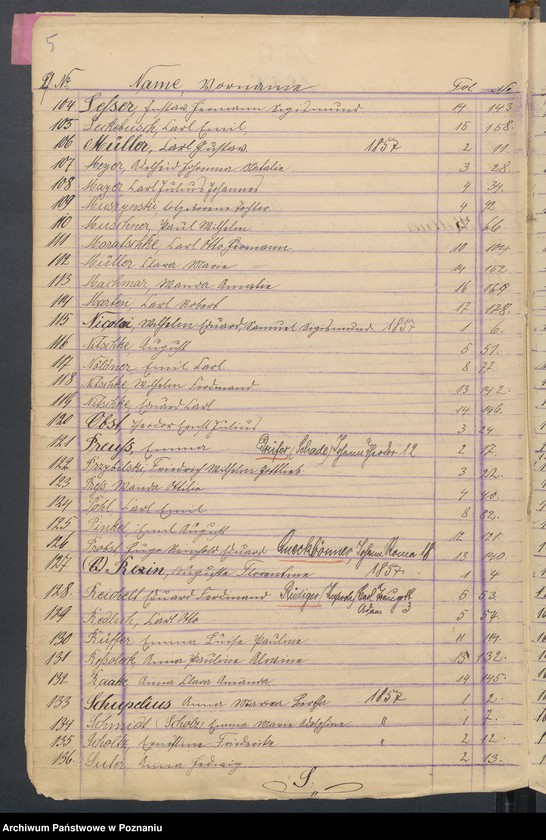 5
No Name, Vorname Fol. No
104 Lesser, Gustav Hermann Sigismund 14 143
105 Carl Emil 15 158.
106 Müller, Carl Gustav. 1857 2 11
107 Meyer, Adelheid Johanna Natalie 3 28
108 Mayer Carl Julius Johannes 4 34.
109 Muszynski Tochter. 4 42.
110 Muschner, Paul Wilhelm 66
111 Maratschke, Carl Otto Hermann 10 104
112 Müller Clara Marie 14 152.
113 Machmar, Wanda Amalie 16 169
114 Marten, Carl Robert 17 178.
115 Nicolai, Wilhelm Eduard, Samuel Sigismund 1857 1 6.
116 Nitschke, August 5 51.
117 Nöldner, Emil Carl 8 77.
118 Nitschke, Wilhelm Ferdinand 13 142.
119 Nitschke, Eduard Carl 14 146.
120 Obst, Theodor Ernst Julius 3 24
121 Preuß, Emma Johann 12 2 17.
122 Przybilski Friedrich Wilhelm Gottlieb 3 22.
123 Wanda Ottilie 4 40.
124 Pohl Carl Emil 8 82.
125 Pinkel Emil August 12 121
126 Probst Hugo Eduard 18 13 140.
127 Rezin, Auguste Florentine 1857 1 4
128. Reidell Eduard Ferdinand Rüdiger, Carl August Adam 3 5 53.
129 Redlich, Carl Otto 5 54.
130 Küffer Emma Luise Pauline 11 114.
131 Anna Pauline Alwine 13 132.
132 Raake Anna Clara Amanda 14 145.
133 Schupelius Anna Maria Bertha 1857 1 2.
134 Schmidt (Scholz) Emma Marie Adolphine " 1 2.
135 Scholtz Ernestine Friederike " 2 12.
136. Suter Anna Hedwig 2 13.
S.
Archiwum Państwowe w Poznaniu